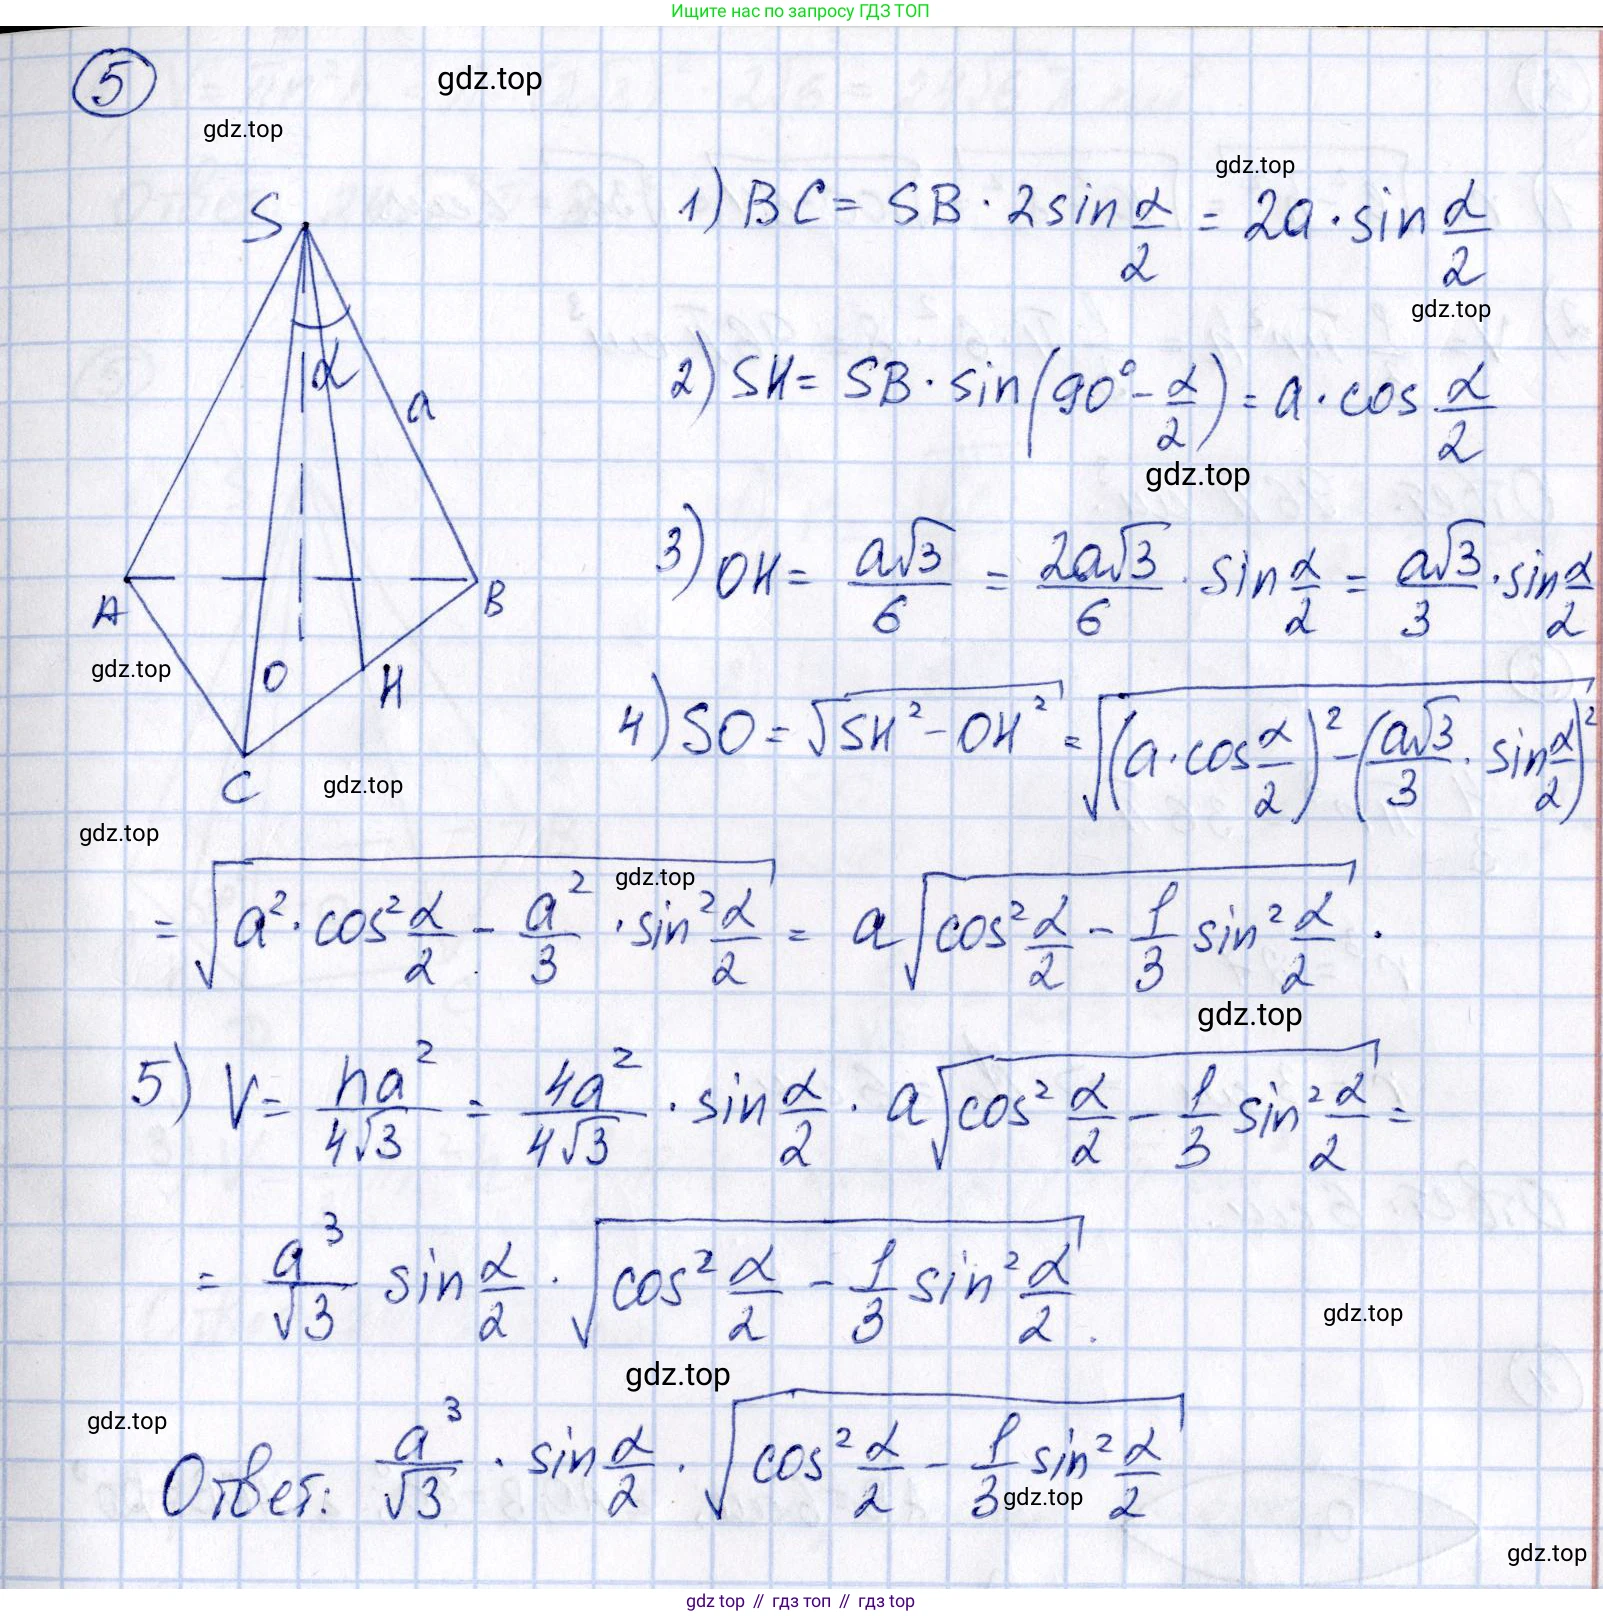 Ищите нас по запросу ГДЗ ТОП
5
gdz.top
gdz.top
gdz.top
S
1) BC = SB · 2sin α/2 = 2a · sin α/2
gdz.top
α
a
2) SH = SB · sin(90° - α/2) = a · cos α/2
gdz.top
3) OH = a√3/6 = 2a√3/6 · sin α/2 = a√3/3 · sin α/2
A
B
gdz.top
O
H
4) SO = √(SH² - OH²) = √((a · cos α/2)² - (a√3/3 · sin α/2)²)
C
gdz.top
gdz.top
gdz.top
= √(a² · cos² α/2 - a²/3 · sin² α/2) = a√(cos² α/2 - 1/3 sin² α/2) .
gdz.top
5) V = ha²/4√3 = 4a²/4√3 · sin α/2 · a√(cos² α/2 - 1/3 sin² α/2) =
= a³/√3 sin α/2 · √(cos² α/2 - 1/3 sin² α/2) .
gdz.top
gdz.top
gdz.top
Ответ: a³/√3 · sin α/2 · √(cos² α/2 - 1/3 sin² α/2)
gdz.top
gdz.top
gdz top // гдз топ // гдз top